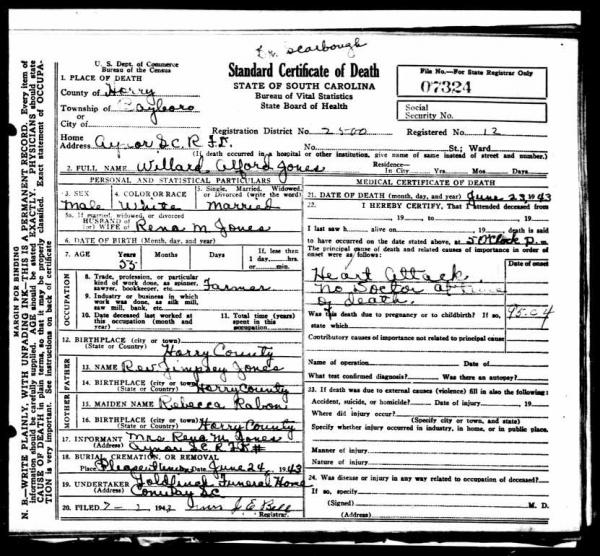 Dr. Scarbough
U. S. Dept. of Commerce
Bureau of the Census
Standard Certificate of Death
STATE OF SOUTH CAROLINA
Bureau of Vital Statistics
State Board of Health
File No.—For State Registrar Only
07324
Social
Security No.
1. PLACE OF DEATH
County of Horry
Township of Bayboro
or
City of
Registration District No. 2500
Registered No. 12
Home
Address Aynor S.C. R.F.D.
No. St.; Ward
(If death occurred in a hospital or other institution, give name of same instead of street and number.)
2. FULL NAME Willard Alford Jones
Residence—
In City Yrs. Mos. Days
PERSONAL AND STATISTICAL PARTICULARS
3. SEX
Male
4. COLOR OR RACE
White
5. Single, Married, Widowed,
or Divorced (write the word)
Married
5a. If married, widowed, or divorced
HUSBAND of
(or) WIFE of Rena M. Jones
6. DATE OF BIRTH (Month, day, and year)
7. AGE Years Months Days
55
If less than
1 day, hrs.
or min.
OCCUPATION
8. Trade, profession, or particular
kind of work done, as spinner,
sawyer, bookkeeper, etc. Farmer
9. Industry or business in which
work was done, as silk mill,
saw mill, bank, etc.
10. Date deceased last worked at
this occupation (month and
year)
11. Total time (years)
spent in this
occupation
12. BIRTHPLACE (city or town)
(State or Country) Horry County
FATHER
13. NAME Rev. Jimpsey Jones
14. BIRTHPLACE (city or town)
(State or Country) Horry County
MOTHER
15. MAIDEN NAME Rebecca Rabon
16. BIRTHPLACE (city or town)
(State or Country) Horry County
17. INFORMANT Mrs Rena M. Jones
(Address) Aynor S.C. R.F.D.#
18. BURIAL, CREMATION, OR REMOVAL
Place Date June 24, 1943
19. UNDERTAKER Goldfinch Funeral Home
(Address) Conway SC
20. FILED 7-2 1943 Mrs J E Bell
Registrar.
MEDICAL CERTIFICATE OF DEATH
21. DATE OF DEATH (month, day, and year) June 23, 1943
22. I HEREBY CERTIFY, That I attended deceased from
, 19 , to , 19
I last saw h alive on , 19 ; death is said
to have occurred on the date stated above, at 5 O'Clock P. m.
The principal cause of death and related causes of importance in order of
onset were as follows:
Date of onset
Heart Attack.
No Doctor at time
of death.
95.c4
Was this death due to pregnancy or to childbirth? If so,
state which
Contributory causes of importance not related to principal cause
Name of operation Date of
What test confirmed diagnosis? Was there an autopsy?
23. If death was due to external causes (violence) fill in also the following:
Accident, suicide, or homicide? Date of injury , 19
Where did injury occur?
(Specify city or town, and state)
Specify whether injury occurred in industry, in home, or in public place.
Manner of injury
Nature of injury
24. Was disease or injury in any way related to occupation of deceased?
If so, specify
(Signed) M. D.
(Address)
MARGIN FOR BINDING
N. B.—WRITE PLAINLY, WITH UNFADING INK—THIS IS A PERMANENT RECORD. Every item of
information should be carefully supplied. AGE should be stated EXACTLY. PHYSICIANS should state
CAUSE OF DEATH in plain terms, so that it may be properly classified. Exact statement of OCCUPA-
TION is very important. See instructions on back of certificate